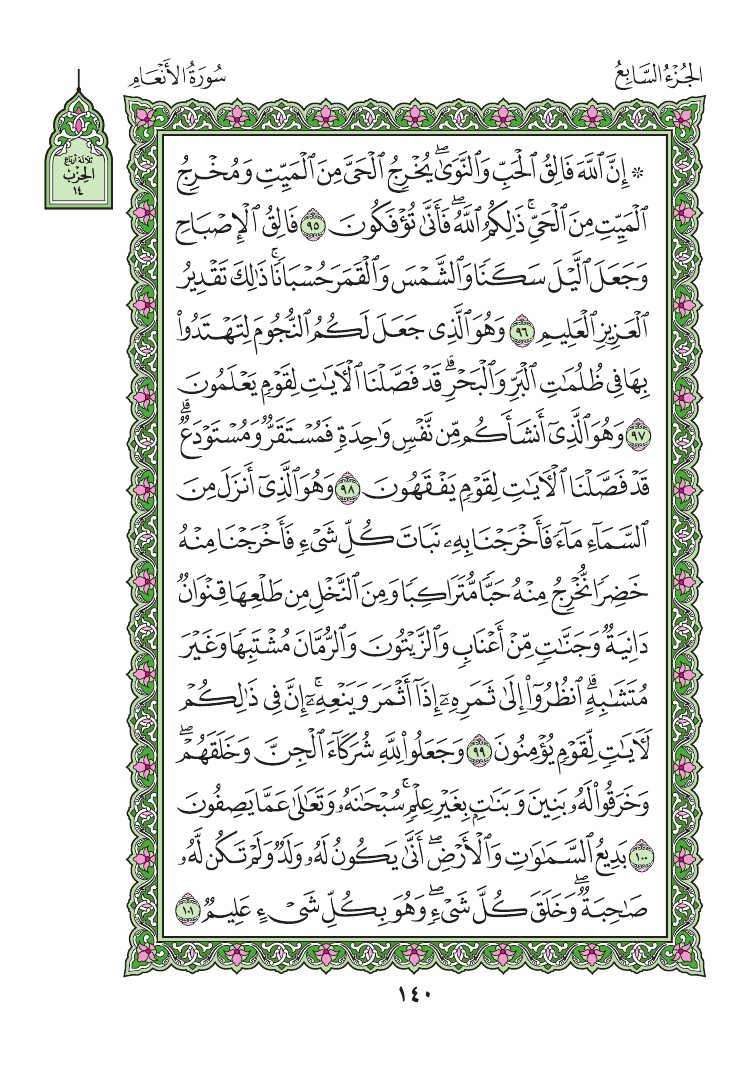 الجُزْءُ السَّابِعُ
سُورَةُ الأَنْعَامِ
ثلاثة أرباع
الحزب
١٤
۞ إِنَّ ٱللَّهَ فَالِقُ ٱلْحَبِّ وَٱلنَّوَىٰۖ يُخْرِجُ ٱلْحَيَّ مِنَ ٱلْمَيِّتِ وَمُخْرِجُ
ٱلْمَيِّتِ مِنَ ٱلْحَيِّۚ ذَٰلِكُمُ ٱللَّهُۖ فَأَنَّىٰ تُؤْفَكُونَ ٩٥ فَالِقُ ٱلْإِصْبَاحِ
وَجَعَلَ ٱلَّيْلَ سَكَنًا وَٱلشَّمْسَ وَٱلْقَمَرَ حُسْبَانًاۚ ذَٰلِكَ تَقْدِيرُ
ٱلْعَزِيزِ ٱلْعَلِيمِ ٩٦ وَهُوَ ٱلَّذِي جَعَلَ لَكُمُ ٱلنُّجُومَ لِتَهْتَدُوا۟
بِهَا فِي ظُلُمَٰتِ ٱلْبَرِّ وَٱلْبَحْرِۗ قَدْ فَصَّلْنَا ٱلْءَايَٰتِ لِقَوْمٍ يَعْلَمُونَ
٩٧ وَهُوَ ٱلَّذِيٓ أَنشَأَكُم مِّن نَّفْسٍ وَٰحِدَةٍ فَمُسْتَقَرٌّ وَمُسْتَوْدَعٌۗ
قَدْ فَصَّلْنَا ٱلْءَايَٰتِ لِقَوْمٍ يَفْقَهُونَ ٩٨ وَهُوَ ٱلَّذِيٓ أَنزَلَ مِنَ
ٱلسَّمَآءِ مَآءً فَأَخْرَجْنَا بِهِۦ نَبَاتَ كُلِّ شَيْءٍ فَأَخْرَجْنَا مِنْهُ
خَضِرًا نُّخْرِجُ مِنْهُ حَبًّا مُّتَرَاكِبًا وَمِنَ ٱلنَّخْلِ مِن طَلْعِهَا قِنْوَانٌ
دَانِيَةٌ وَجَنَّٰتٍ مِّنْ أَعْنَابٍ وَٱلزَّيْتُونَ وَٱلرُّمَّانَ مُشْتَبِهًا وَغَيْرَ
مُتَشَٰبِهٍۗ ٱنظُرُوٓا۟ إِلَىٰ ثَمَرِهِۦٓ إِذَآ أَثْمَرَ وَيَنْعِهِۦٓۚ إِنَّ فِي ذَٰلِكُمْ
لَءَايَٰتٍ لِّقَوْمٍ يُؤْمِنُونَ ٩٩ وَجَعَلُوا۟ لِلَّهِ شُرَكَآءَ ٱلْجِنَّ وَخَلَقَهُمْۖ
وَخَرَقُوا۟ لَهُۥ بَنِينَ وَبَنَٰتٍۭ بِغَيْرِ عِلْمٍۚ سُبْحَٰنَهُۥ وَتَعَٰلَىٰ عَمَّا يَصِفُونَ
١٠٠ بَدِيعُ ٱلسَّمَٰوَٰتِ وَٱلْأَرْضِۖ أَنَّىٰ يَكُونُ لَهُۥ وَلَدٌ وَلَمْ تَكُن لَّهُۥ
صَٰحِبَةٌۖ وَخَلَقَ كُلَّ شَيْءٍۖ وَهُوَ بِكُلِّ شَيْءٍ عَلِيمٌ ١٠١
١٤٠